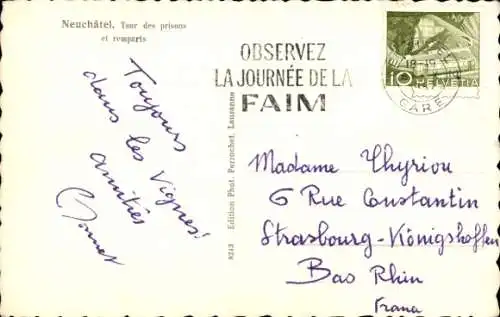 Neuchâtel. Tour des prisons
et remparts
OBSERVEZ
LA JOURNÉE DE LA
FAIM
10 HELVETIA
GARE
Toujours
dans les Vignes!
amitiés
8243 Edition Phot. Perrochet, Lausanne
Madame Thyriou
6 Rue Constantin
Strasbourg-Königshoffen
Bas Rhin
France